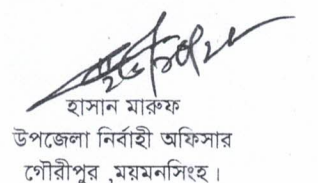 হাসান মারুফ
উপজেলা নির্বাহী অফিসার
গৌরীপুর ,ময়মনসিংহ।